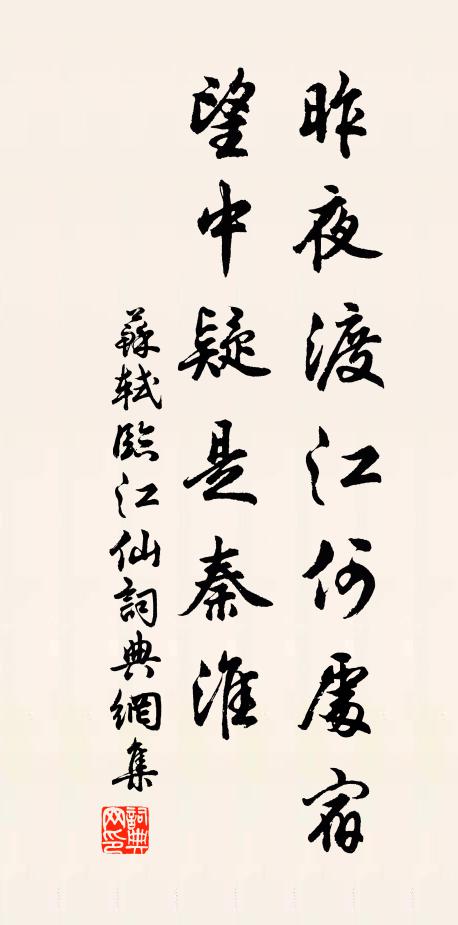 昨夜渡江何處宿
望中疑是秦淮
蘇軾臨江仙詞典網集
詞典网印